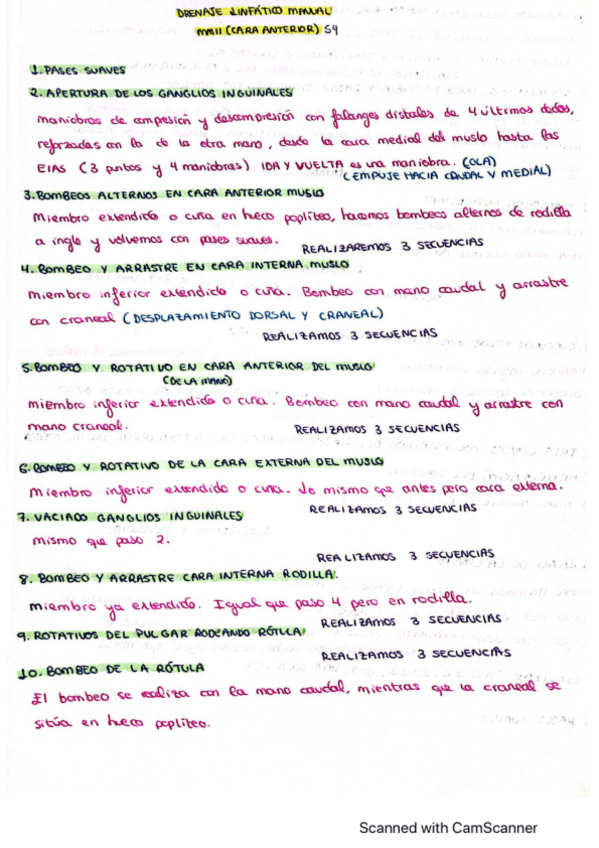 DRENAJE LINFÁTICO MANUAL
MMII (CARA ANTERIOR) S4
1. PASES SUAVES
2. APERTURA DE LOS GANGLIOS INGUINALES
maniobras de compesión y descompresión con falanges distales de 4 últimos dedos,
reforzadas con la de la otra mano, desde la cara medial del muslo hasta las
EIAS (3 puntos y 4 maniobras) IDA Y VUELTA es una maniobra. (OLA)
(EMPUJE HACIA CAUDAL Y MEDIAL)
3. BOMBEOS ALTERNOS EN CARA ANTERIOR MUSLO
Miembro extendido o cuña en hueco poplíteo, hacemos bombeos alternos de rodilla
a ingle y volvemos con pases suaves.
REALIZAREMOS 3 SECUENCIAS
4. BOMBEO Y ARRASTRE EN CARA INTERNA MUSLO
Miembro inferior extendido o cuña. Bombeo con mano caudal y arrastre
con craneal (DESPLAZAMIENTO DORSAL Y CRANEAL)
REALIZAMOS 3 SECUENCIAS
5. BOMBEO Y ROTATIVO EN CARA ANTERIOR DEL MUSLO
(DE LA MANO)
Miembro inferior extendido o cuña. Bombeo con mano caudal y arrastre con
mano craneal.
REALIZAMOS 3 SECUENCIAS
6. BOMBEO Y ROTATIVO DE LA CARA EXTERNA DEL MUSLO
Miembro inferior extendido o cuña. Lo mismo que antes pero cara externa.
REALIZAMOS 3 SECUENCIAS
7. VACIADO GANGLIOS INGUINALES
Mismo que paso 2.
REALIZAMOS 3 SECUENCIAS
8. BOMBEO Y ARRASTRE CARA INTERNA RODILLA.
Miembro ya extendido. Igual que paso 4 pero en rodilla.
REALIZAMOS 3 SECUENCIAS
9. ROTATIVOS DEL PULGAR RODEANDO RÓTULA
REALIZAMOS 3 SECUENCIAS
10. BOMBEO DE LA RÓTULA
El bombeo se realiza con la mano caudal, mientras que la craneal se
sitúa en hueco poplíteo.
Scanned with CamScanner